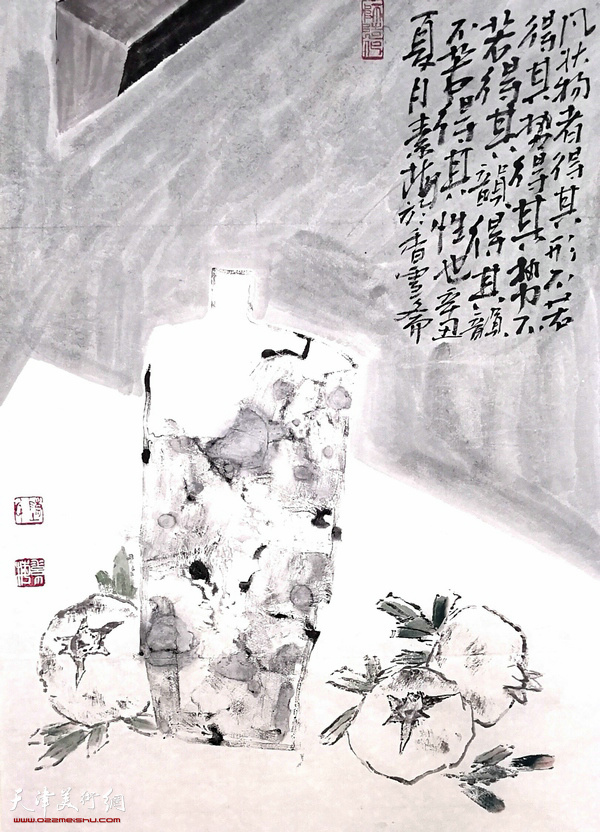 凡状物者得其形不若
得其势得其势不
若得其韵得其韻
不若得其性也辛丑
夏月素梅於香雪斋
天津美術網
www.022meishu.com